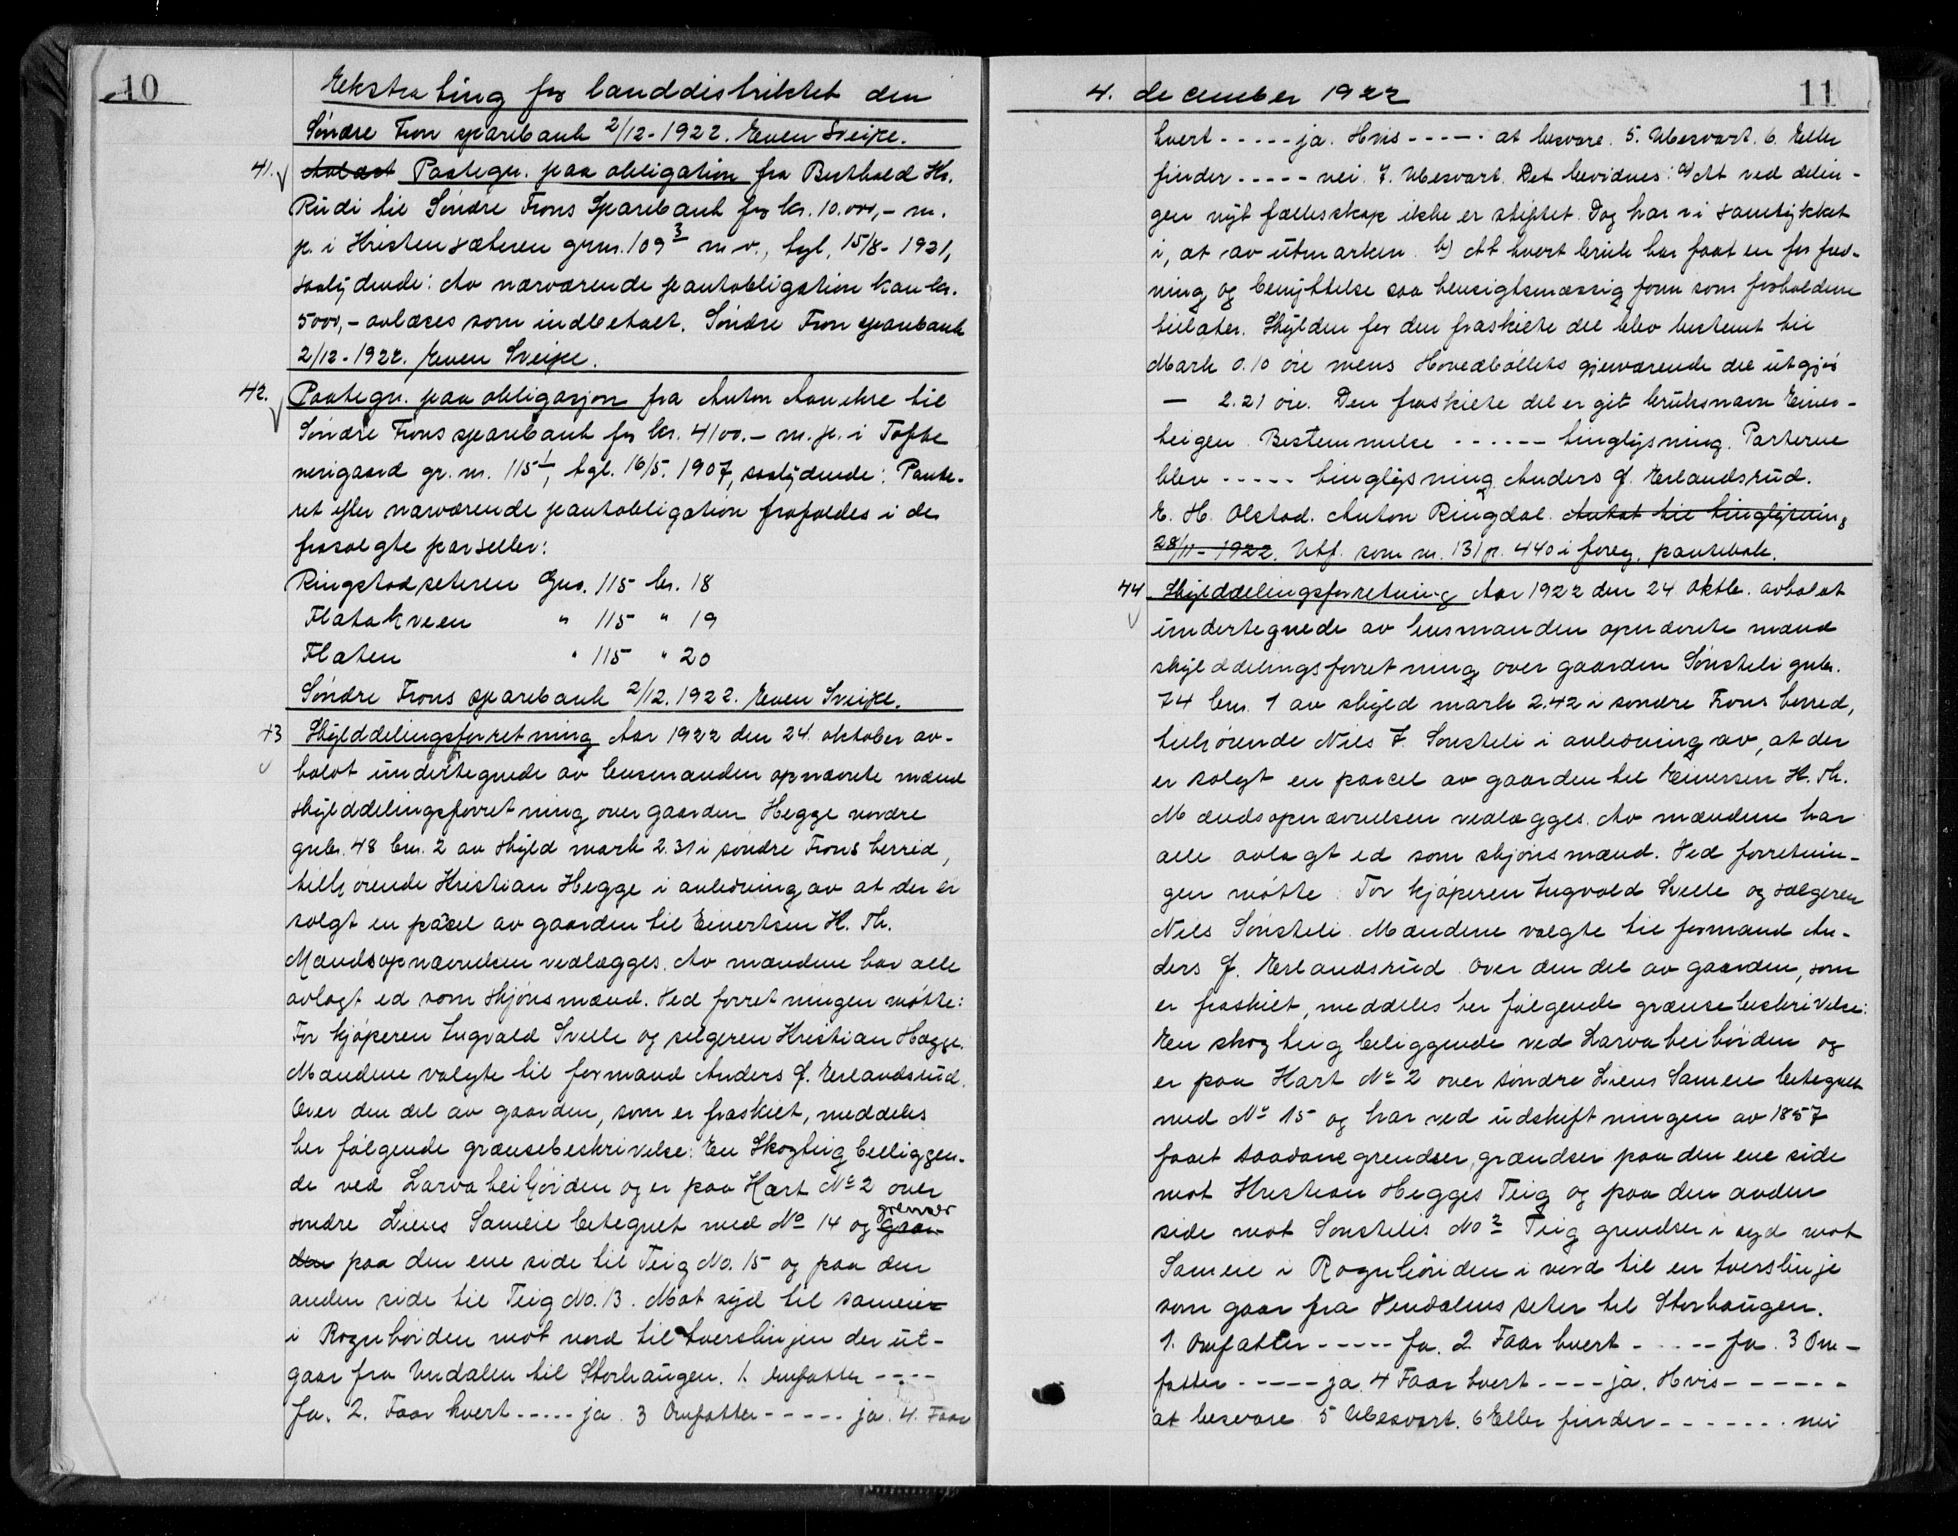 10
Ekstra ting for landdistriktet den
Søndre Fron sparebank 2/12-1922. Even Sveipe.
41. Avlæst Paategn. paa obligation fra Berthold Kr.
Rudi til Søndre Frons Sparebank for kr. 10.000,- m.
p. i Kristensæteren grnr. 109 3 m. v., tgl. 15/8-1921,
saalydende: Av nærværende pantobligation kan kr.
5000,- avlæses som indbetalt. Søndre Fron sparebank
2/12-1922. Even Sveipe.
42. Paategn. paa obligasjon fra Anton Aanekre til
Søndre Frons sparebank for kr. 4100.- m. p. i Tofte
nerigaard gr. nr. 115 1, tgl. 16/5. 1907, saalydende: Pante-
ret efter nærværende pantobligation frafaldes i de
frasolgte parseller:
Ringstadseteren Gnr. 115 br. 18
Flatakveen " 115 " 19
Flaten " 115 " 20
Søndre Frons sparebank 2/12. 1922. Even Sveipe.
43 Skylddelingsforretning Aar 1922 den 24. oktober av-
holdt undertegnede av lensmanden opnævnte mænd
skylddelingsforretning over gaarden Hegge nordre
gnbr. 48 bnr. 2 av skyld mark 2.31 i søndre Frons herred,
tilhørende Kristian Hegge i anledning av at der er
solgt en parcel av gaarden til Einertsen H. Th.
Mændsopnævnelsen vedlægges. Av mændene har alle
avlagt ed som skjønsmænd. Ved forretningen møtte:
For kjøperen Ingvald Svelle og selgeren Kristian Hegge.
Mændene valgte til formand Anders J. Erlandsrud.
Over den del av gaarden, som er fraskilt, meddeles
her følgende grænsebeskrivelse: En Skogteig beliggen-
de ved Larvabeibøiden og er paa Kart No 2 over
søndre Liens Sameie betegnet med No 14 og græn grenser
den paa den ene side til Teig No. 15 og paa den
anden side til Teig No. 13. Mot syd til sameie
i Rognbøiden mot nord til tverslinjen der ut-
gaar fra Vendalen til Storhaugen. 1. Omfatter ----
Ja. 2. Faar hvert ----- ja. 3 Omfatter ----- ja. 4. Faar
4. december 1922
11
hvert ----- ja. Hvis ----- at besvare. 5. Ubesvart. 6. Eller
finder ----- nei. 7. Ubesvart. Det bevidnes: a) At ved delin-
gen nyt fællesskap ikke er stiftet. Dog har vi samtykket
i, at av utmarken. b) At hvert bruk har faat en for fred-
ning og benyttelse saa hensigtsmæssig form som forholdene
tillater. Skylden for den fraskilte del blev bestemt til
Mark 0.10 øre mens Hovedbøllets gjenværende del utgjør
— 2.21 øre. Den fraskilte del er git bruksnavn Einer-
teigen. Bestemmelse ------ tinglysning. Parterne
blev ----- tinglysning. Anders J. Erlandsrud.
E. H. Olstad. Anton Ringdal. Antat til tinglysning
28/11-1922. Utf. som nr. 131 p. 440 i foreg. pantebok.
44 Skylddelingsforretning Aar 1922 den 24 oktbr. avholdt
undertegnede av lensmanden opnævnte mænd
skylddelingsforretning over gaarden Sønsteli gnbr.
74 bnr. 1 av skyld mark 2.42 i søndre Frons herred,
tilhørende Nils J. Sønsteli i anledning av, at der
er solgt en parcel av gaarden til Einersen H. Th.
Mændsopnævnelsen vedlægges. Av mændene har
alle avlagt ed som skjønsmænd. Ved forretnin-
gen møtte: For kjøperen Ingvald Svelle og sælgeren
Nils Sønsteli. Mændene valgte til formand An-
ders J. Erlandsrud. Over den del av gaarden, som
er fraskilt, meddeles her følgende grænsebeskrivelse:
En skogteig beliggende ved Larvabeibøiden og
er paa Kart No 2 over søndre Liens Sameie betegnet
med No 15 og har ved udskiftningen av 1857
faaet saadane grendser, grændser paa den ene side
mot Kristian Hegges Teig og paa den anden
side mot Sønstelis No 2 Teig grendser i syd mot
Sameie i Rognbøiden i nord til en tverslinje
som gaar fra Vendalens seter til Storhaugen.
1. Omfatter ----- Ja. 2 Faar hvert ----- Ja. 3 Om-
fatter ----- ja. 4 Faar hvert ---- ja. Hvis ------
at besvare. 5 Ubesvart. 6 Eller finder ------- nei